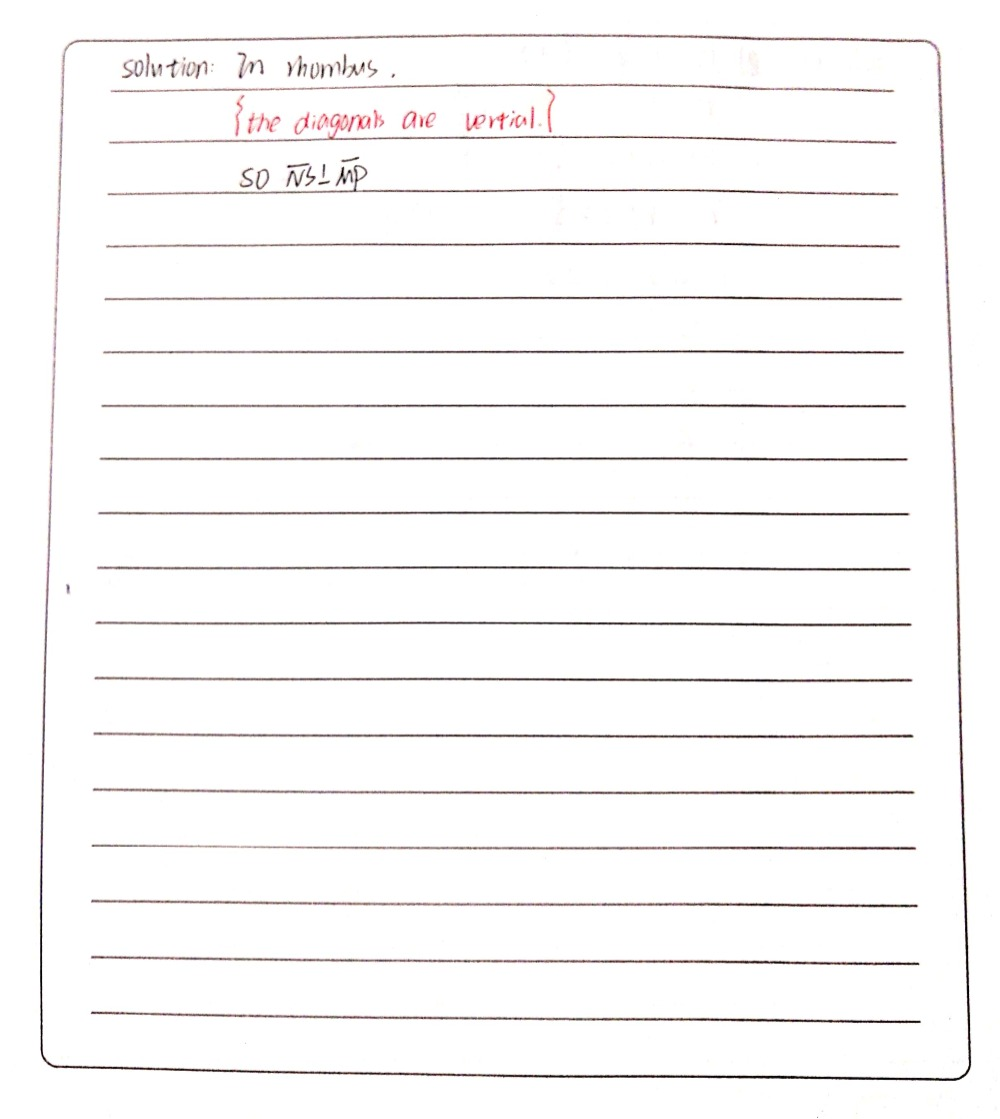 solution: In rhombus.
{the diagonals are vertial.}
SO N̅S̅⊥M̅P̅